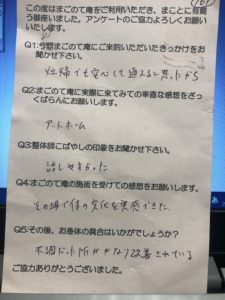 この度はまごのて庵をご利用いただき、まことに有難
う御座いました。アンケートのご協力よろしくお願い
いたします。
Q1:今回まごのて庵にご来院いただいたきっかけをお
聞かせ下さい。
妊婦でも安心して通えると思ったから
Q2:まごのて庵に実際に来てみての率直な感想をざっ
くばらんにお願いします。
アットホーム
Q3:整体師こばやしの印象をお聞かせ下さい。
話しやすかった
Q4:まごのて庵の施術を受けての感想をお願いします。
その場で体の変化を実感できた
Q5:その後、お身体の具合はいかがでしょうか?
不調だった所がかなり改善されている
ご協力ありがとうございました。